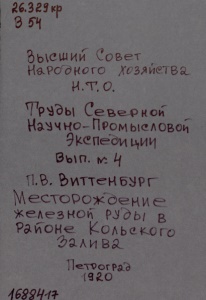 26.329кр
В 54
Высший Совет
Народного хозяйства
Н.Т.О.
Труды Северной
Научно-Промысловой
Экспедиции
Вып. № 4
П.В. Виттенбург
Месторождение
железной руды в
районе Кольского
залива
Петроград
1920
1688417